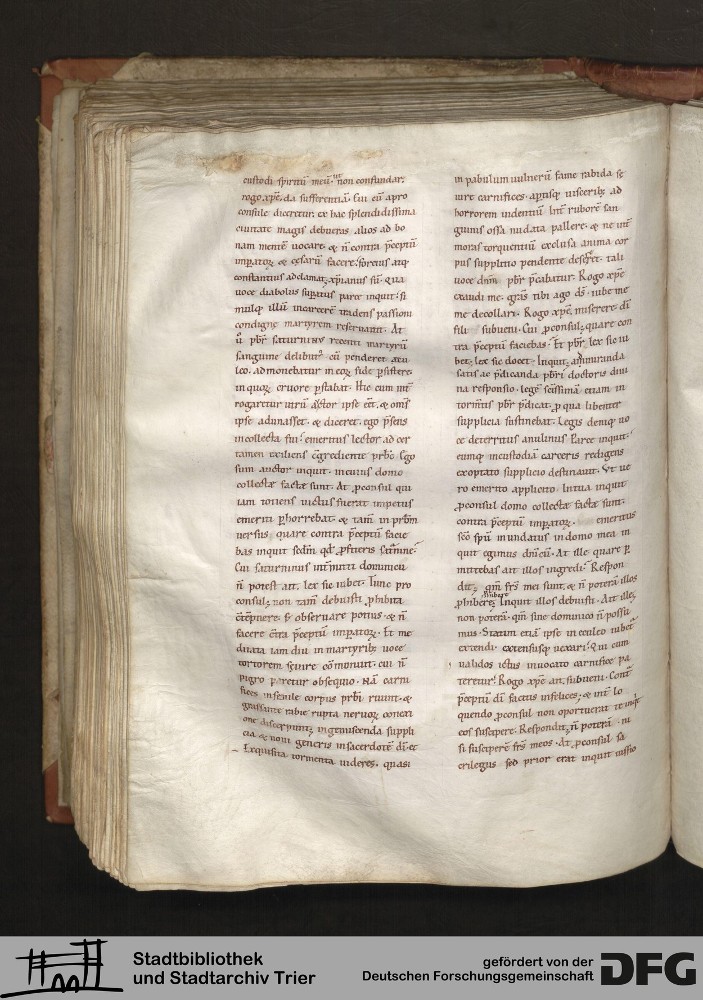 custodi spiritū meū. ut non confundar.
rogo xpē. da sufferentiā. Cui cū apro
consule diceretur. ex hac splendidissima
ciuitate magis debueras alios ad bo
nam mentē uocare. & ñ contra p̄ceptū
imp̄atoꝝ & cesarū facere. fortius atq;
constantius adclamat; xp̄ianus sū. Qua
uoce diabolus sup̄atus parce inquit. Si
mulq; illū incarcerē tridens passioni
condigne martyrem reseruauit. At
ů pbr̄ saturninꝰ recenti martyrū
sanguine delibutꝰ cū penderet ęcu
leo. admonebatur in eoꝝ fide p̄sistere.
in quoꝝ cruore p̄stabat. Hic cum int̄
rogaretur utrū auctor ipse ēēt. & om̄s
ipse adunasset. & diceret. ego p̄sens
in collecta fui. emeritus lector ad cer
tamen exiliens c̄grediente pr̄bō. Ego
sum auctor inquit. in cuius domo
collectę factę sunt. At ꝓconsul qui
iam totiens uictus fuerat impetus
emeriti p̄horrebat. & tam̄ in pr̄bm̄
uersus quare contra p̄ceptū facie
bas inquit
Cui saturninus int̄mitti dominicū
ñ potest ait. lex sic iubet. Tunc pro
consul; non tam̄ debuisti ꝓhibita
c̄tēpnere. S; obseruare potius. & ñ
facere c̄tra p̄ceptū imp̄atoꝝ. Et me
ditata iam diu in martyrib; uoce
tortorem sęuire cōmonuit. cui ñ
pigro paretur obsequio. Nā carni
fices in senile corpus pr̄bi ruunt. &
grassante rabie rupta neruoꝝ conexi
one discerpunt; ingemiscenda suppli
cia & noui generis in sacerdotē dī. &
Exquisita tormenta uideres. quasi
in pabulum uulnerū fame rabida sę
uire carnifices. aptisq; uiscerib; ad
horrorem uidentiū Int̄ ruborē san
guinis ossa nudata pallere. & ne int̄
moras torquentiū exclusa anima cor
pus supplitio pendente deser&et. tali
uoce dn̄m pbr̄ p̄cabatur. Rogo xp̄e
exaudi me. gr̄as tibi ago dš. iube me
me decollari. Rogo xp̄e miserere. dī
fili subueni. Cui ꝓconsul; quare con
tra p̄ceptū faciebas. Et pbr̄. lex sic iu
bet. lex sic docet. Inquit. ammiranda
satis ac p̄dicanda pbr̄i doctoris diui
na responsio. legē sc̄issimā etiam in
tormtis pbr̄ p̄dicat. ꝓ qua libenter
supplicia sustinebat. Legis deniq; uo
ce deterritus anulinus Parce inquit.
eumq; in custodiā carceris redigens
exoptato supplicio destinauit. At ue
ro emerito applicito. In tua inquit
ꝓconsul domo collectę factę sunt.
contra p̄ceptū imp̄atoꝝ. emeritus
sc̄o spū inundatus in domo mea in
quit egimus dn̄icū. At ille quare p̄
mittebas ait illos ingredi. Respon
dit; qm̄ frs̄ mei sunt. & ñ poterā illos
ꝓhibere. Inquit illos debuisti. Ait ille;
non poterā. qm̄ sine dominico ñ possu
mus. Statim etiā ipse in eculeo iubet̄
extendi. extensusq; uexari. Qui cum
ualidos ictus innouato carnifice pa
teretur. Rogo xp̄e ait. subueni. Cont̄
p̄ceptū dī factus infelices. & int̄ lo
quendo ꝓconsul non oportuerat te inq̄t
eos suscipere. Respondit; ñ poterā. ni
si suscipere frs̄ meos. At ꝓconsul sa
crilegus sed prior erat inquit iussio
Stadtbibliothek
und Stadtarchiv Trier
gefördert von der
Deutschen Forschungsgemeinschaft
DFG